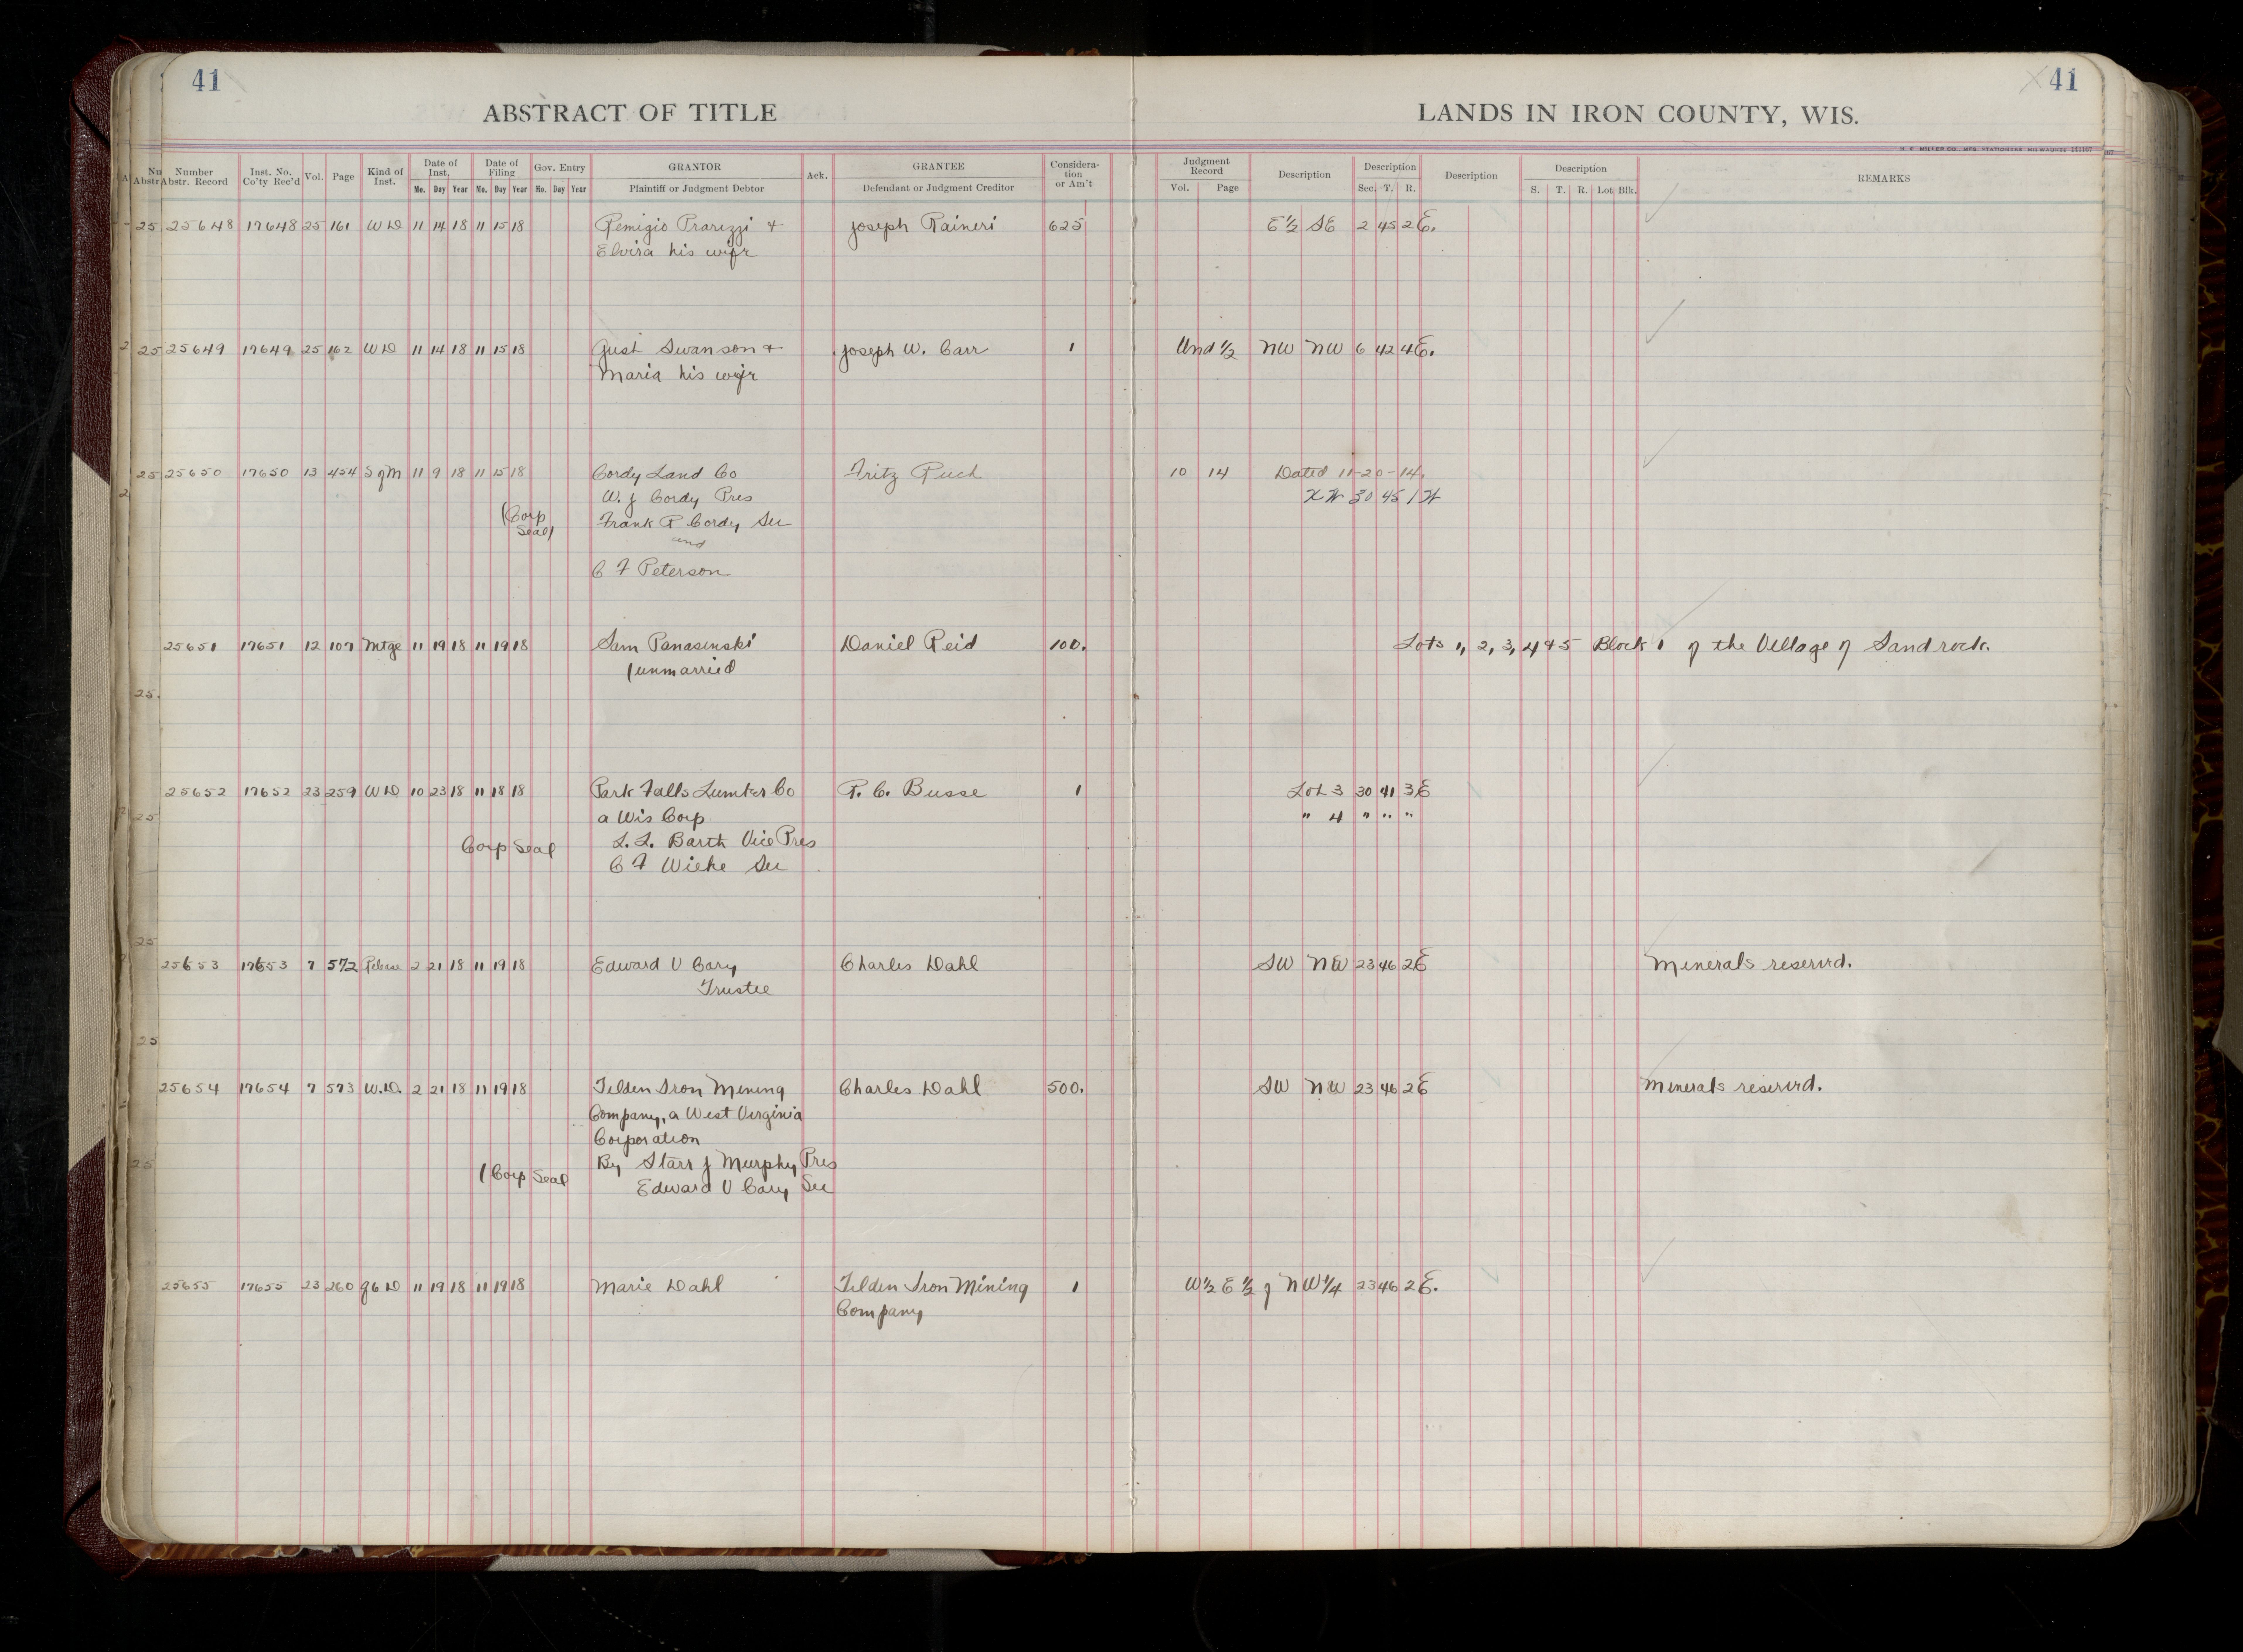 41
41
ABSTRACT OF TITLE
LANDS IN IRON COUNTY, WIS.
H. F. MILLER CO., MFG. STATIONERS MILWAUKEE
Number Abstr. Record | Inst. No. Co'ty Rec'd | Vol. | Page | Kind of Inst. | Date of Inst. Mo. Day Year | Date of Filing Mo. Day Year | Gov. Entry Mo. Day Year | GRANTOR Plaintiff or Judgment Debtor | Ack. | GRANTEE Defendant or Judgment Creditor | Considera-tion or Am't | Judgment Record Vol. Page | Description | Description Sec. T. R. | Description | Description S. T. R. Lot Blk. | REMARKS
25648 17648 25 161 WD 11 14 18 11 15 18 Remigio Prarizzi & Joseph Raineri 625 E½ SE 2 45 2E.
Elvira his wife
25649 17649 25 162 WD 11 14 18 11 15 18 Gust Swanson & Joseph W. Carr 1 Und ½ NW NW 6 42 4E.
Maria his wife
25650 17650 13 454 S of M 11 9 18 11 15 18 Cordy Land Co Fritz Puch 10 14 Dated 11-20-14.
W. J Cordy Pres 30 45 1 W
(Corp Seal) Frank R Cordy Sec
and
C F Peterson
25651 17651 12 107 Mtge 11 19 18 11 19 18 Sam Panasinski Daniel Reid 100. Lots 1, 2, 3, 4 & 5 Block 1 of the Village of Sandrock.
(unmarried
25652 17652 23 259 WD 10 23 18 11 18 18 Park Falls Lumber Co R. C. Busse 1 Lot 3 30 41 3E
a Wis Corp " 4 " " "
Corp Seal L. L. Barth Vice Pres
C F Wiehe Sec
25653 17653 7 572 Release 2 21 18 11 19 18 Edward V Cary Charles Dahl SW NW 23 46 2E Minerals reservd.
Trustee
25654 17654 7 573 W.D. 2 21 18 11 19 18 Tilden Iron Mining Charles Dahl 500. SW NW 23 46 2E Minerals reservd.
Company, a West Virginia
Corporation
(Corp Seal By Starr J Murphy Pres
Edward V Cary Sec
25655 17655 23 260 QCD 11 19 18 11 19 18 Marie Dahl Tilden Iron Mining 1 W½ E½ of NW¼ 23 46 2E.
Company